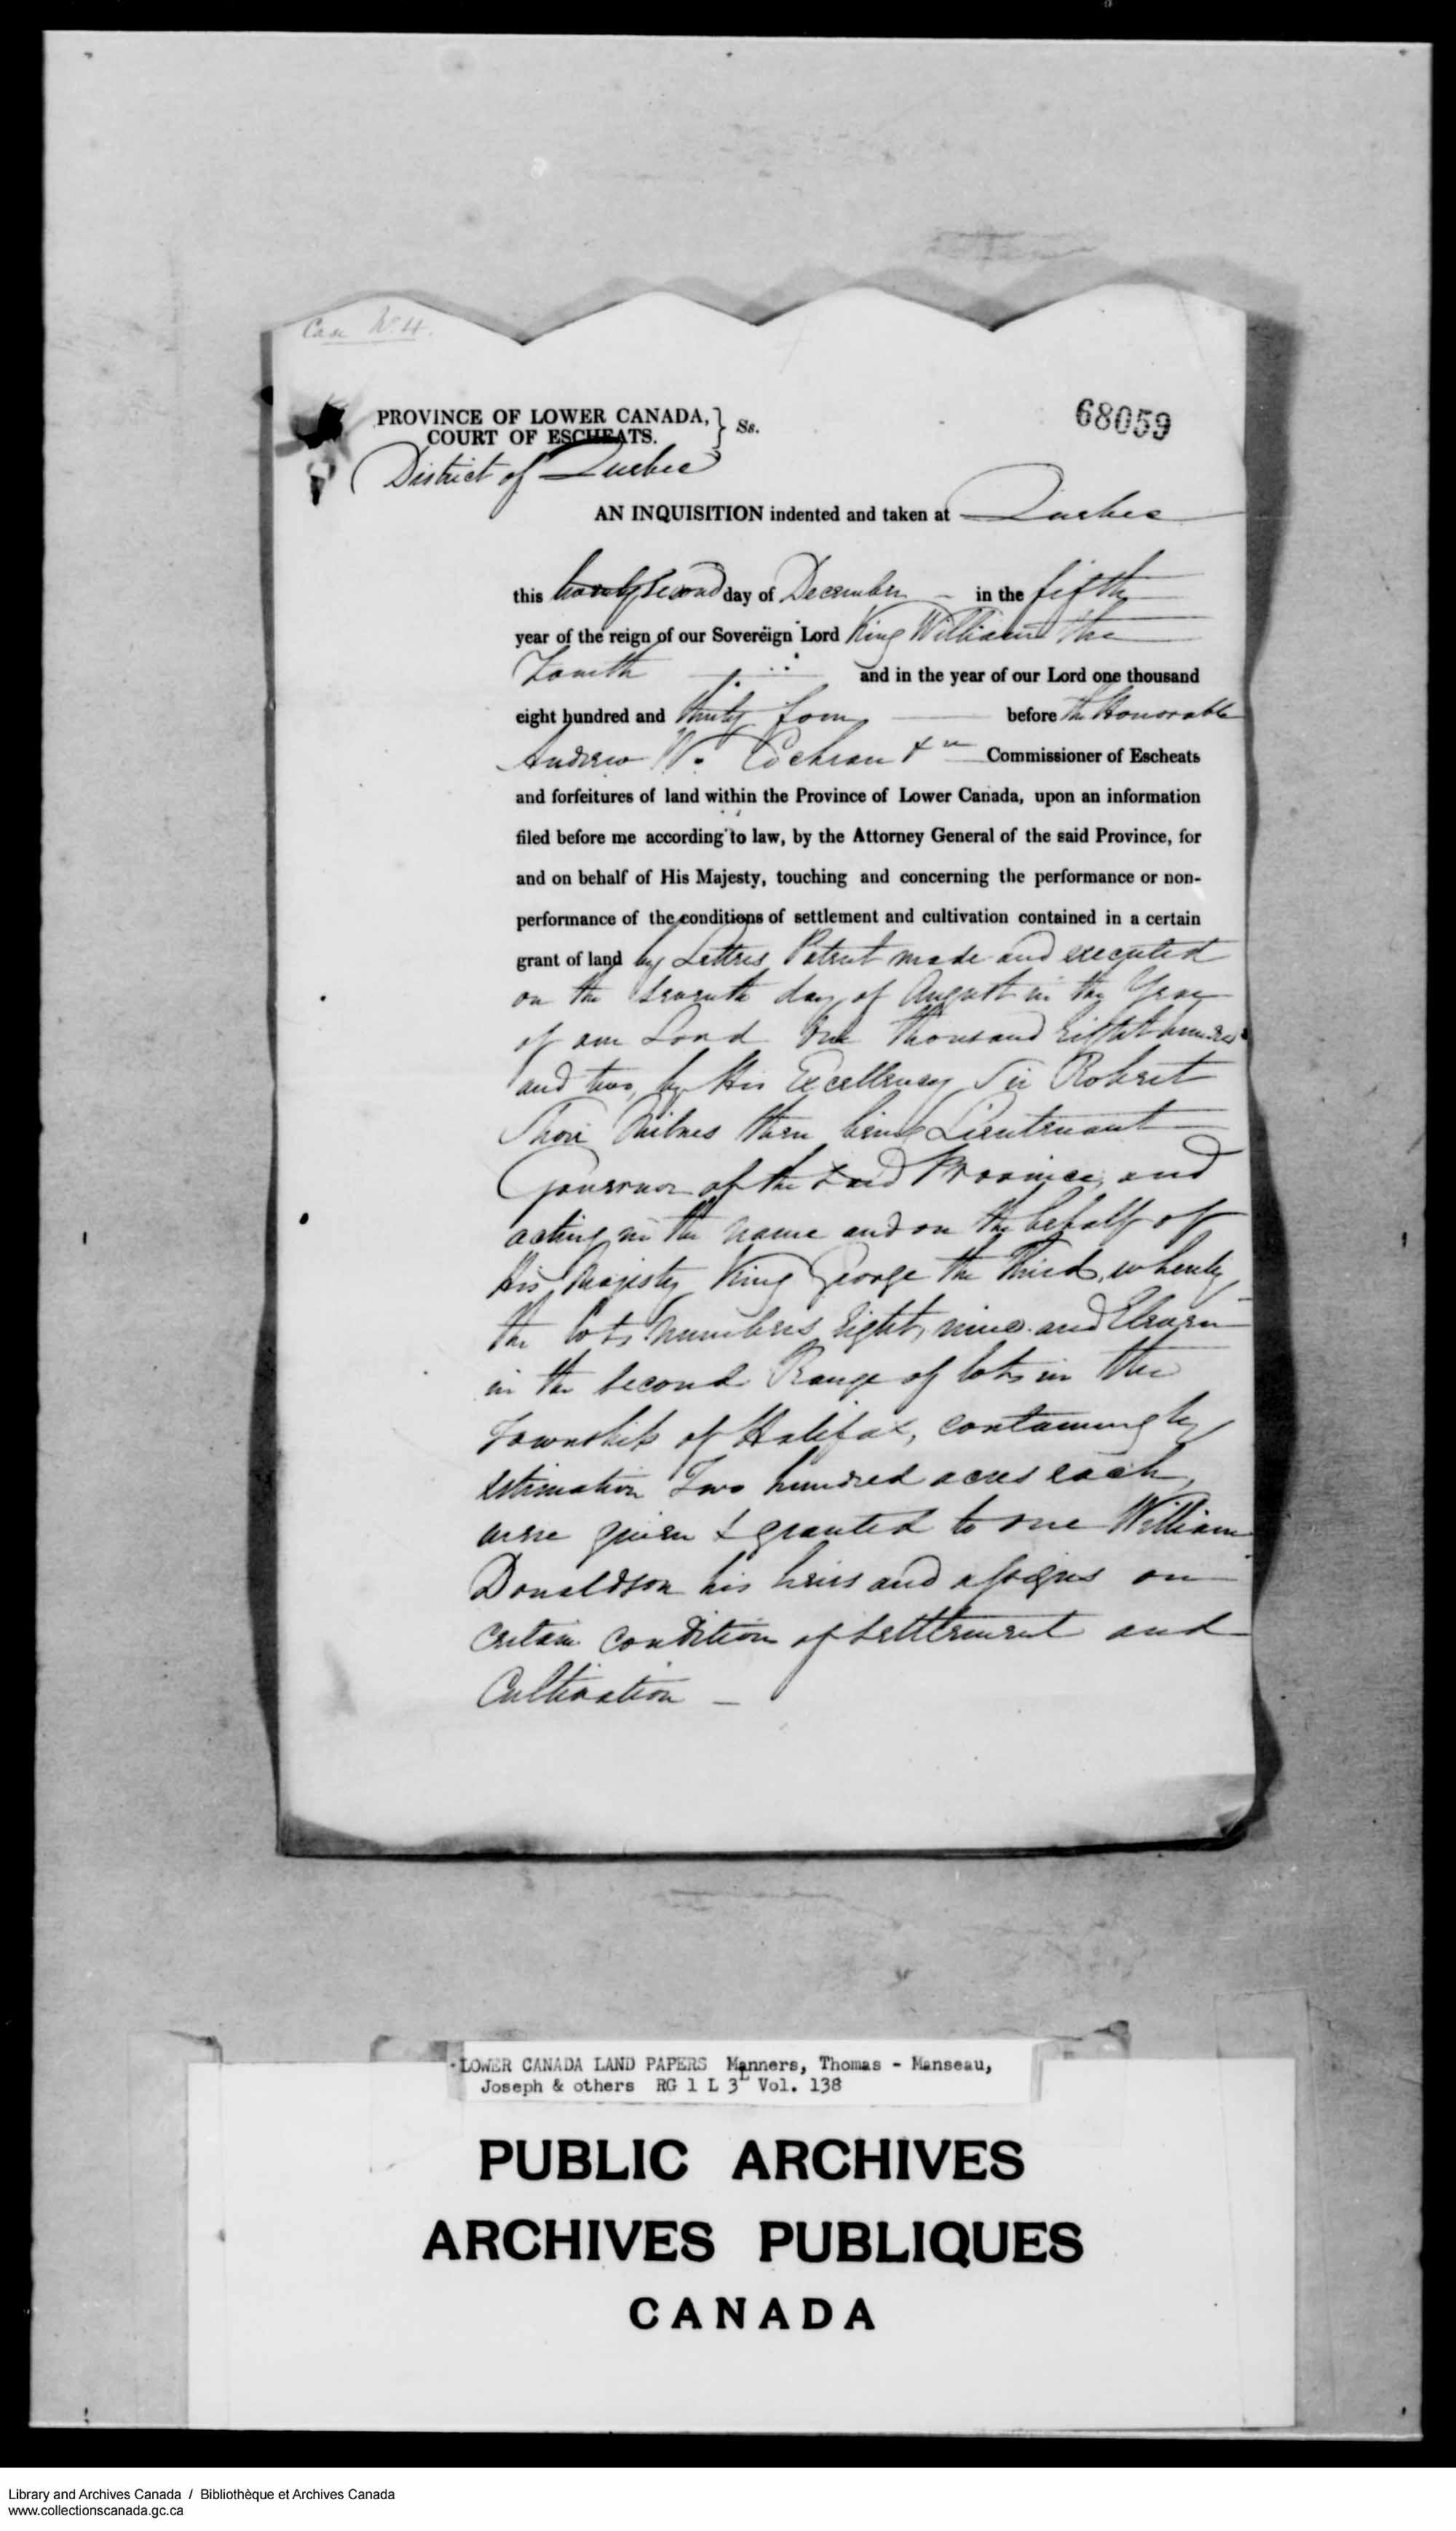 Case No. 4.
68059
PROVINCE OF LOWER CANADA,
COURT OF ESCHEATS. } Ss.
District of Quebec
AN INQUISITION indented and taken at Quebec
this twenty second day of December in the fifth
year of the reign of our Sovereign Lord King William the
Fourth and in the year of our Lord one thousand
eight hundred and thirty four before the Honorable
Andrew W. Cochran Commissioner of Escheats
and forfeitures of land within the Province of Lower Canada, upon an information
filed before me according to law, by the Attorney General of the said Province, for
and on behalf of His Majesty, touching and concerning the performance or non-
performance of the conditions of settlement and cultivation contained in a certain
grant of land by Letters Patent made and executed
on the seventh day of August in the Year
of our Lord One thousand Eight hundred
and two, by His Excellency Sir Robert
Shore Milnes then being Lieutenant
Governor of the said Province, and
acting in the name and on the behalf of
His Majesty King George the Third, whereby
the lots numbers Eight, nine and Eleven
in the second Range of lots in the
Township of Halifax, containing by
estimation Two hundred acres each,
were given & granted to one William
Donaldson his heirs and assigns on
certain condition of settlement and
Cultivation —
LOWER CANADA LAND PAPERS Manners, Thomas - Manseau,
Joseph & others RG 1 L 3L Vol. 138
PUBLIC ARCHIVES
ARCHIVES PUBLIQUES
CANADA
Library and Archives Canada / Bibliothèque et Archives Canada
www.collectionscanada.gc.ca